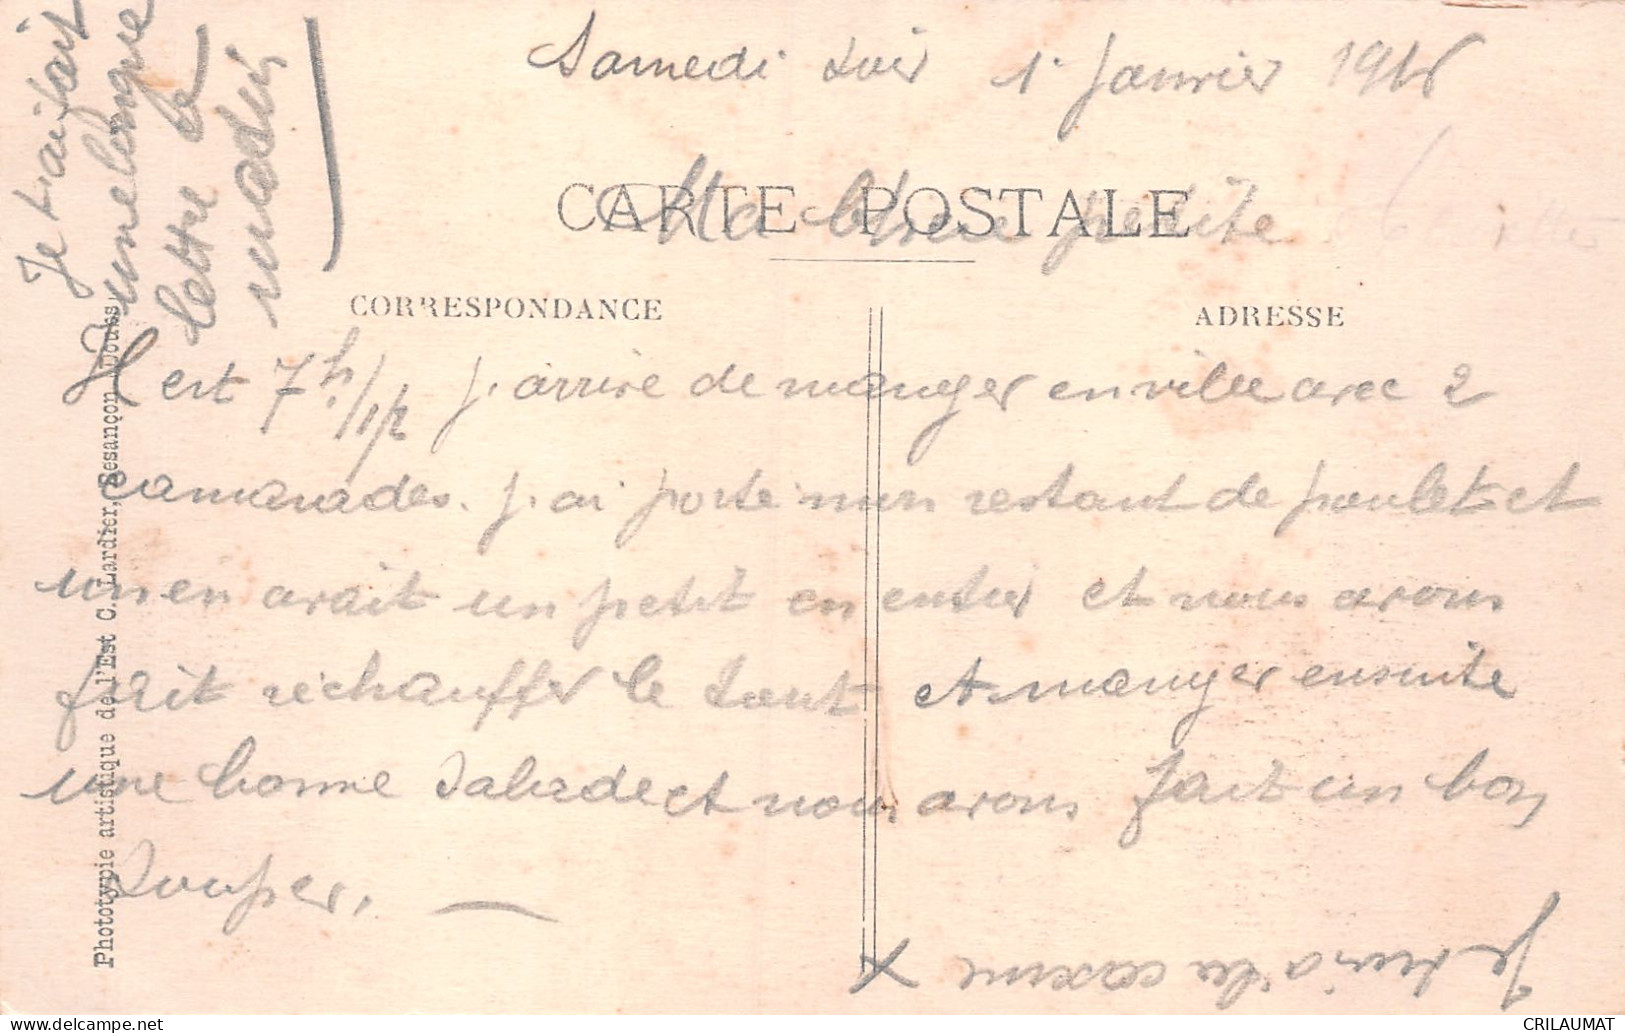 Samedi soir 1 Janvier 1916
CARTE POSTALE
Ma chere petite
CORRESPONDANCE
ADRESSE
Je t'ai fait
une longue
lettre ce
matin
Il est 7h 1/2 j'arrive de manger en ville avec 2
camarades. j'ai porté mon restant de poulet et
un en avait un petit en entier et nous avons
fait réchauffer le tout et manger ensuite
une bonne salade et nous avons fait un bon
souper. —
Je suis à la caserne X
Phototypie artistique de l'Est C. Lardier, Besançon (Doubs)
CRILAUMAT